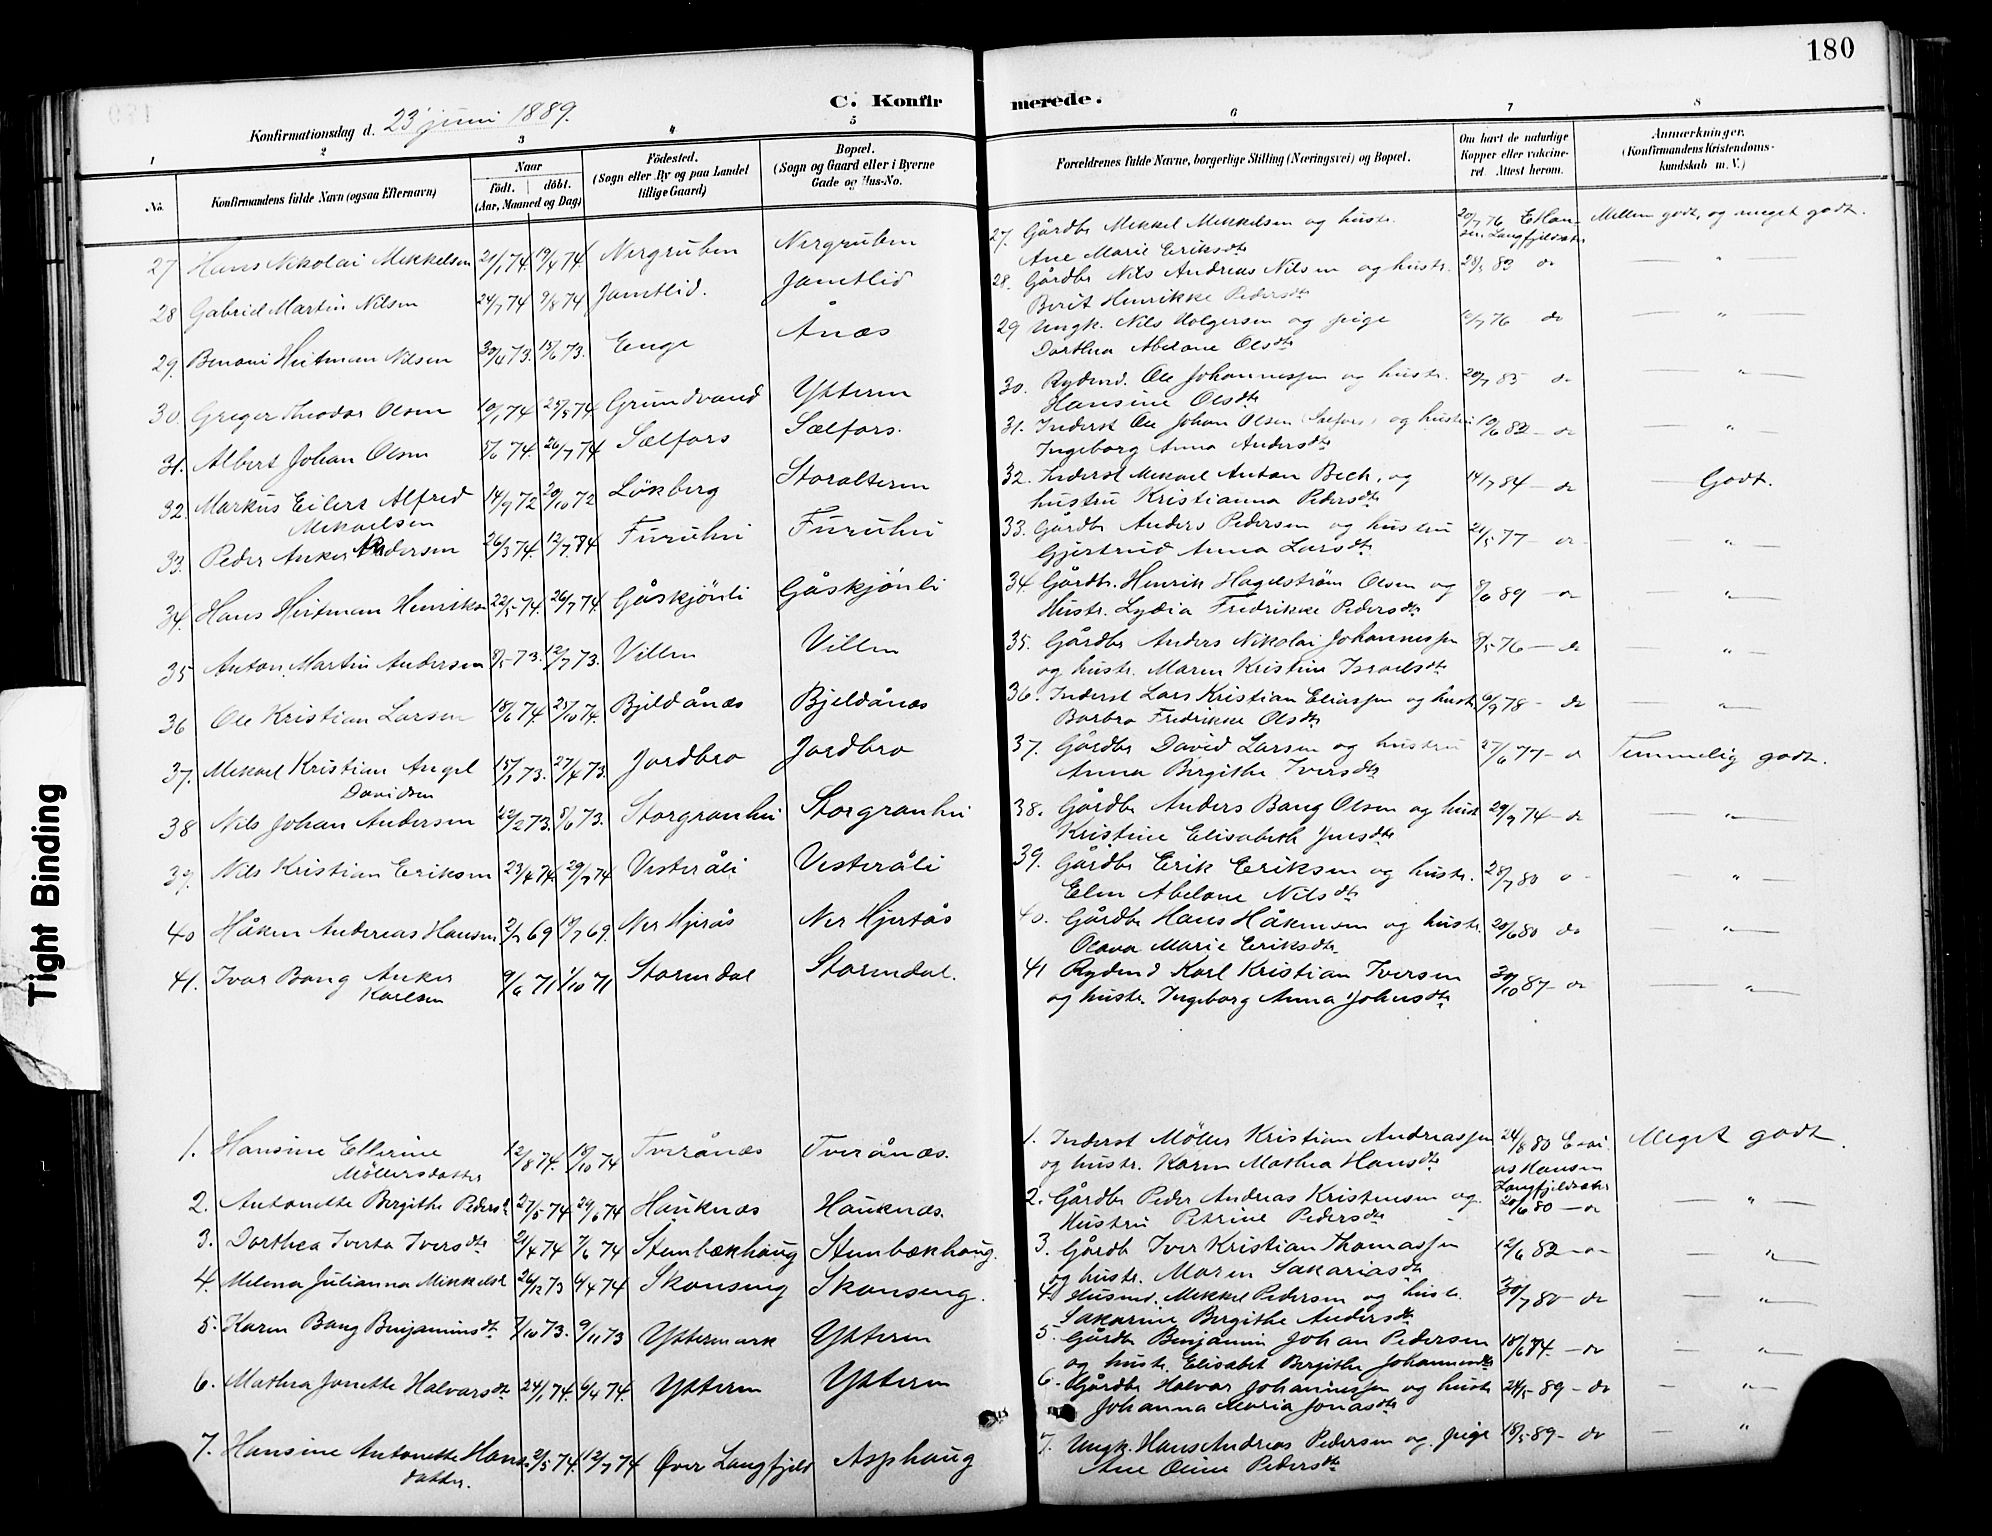 180
C. Konfir merede.
Konfirmationsdag d. 23 juni 1889.
1 2 3 4 5 6 7 8
No.
Konfirmandens fulde Navn (ogsaa Efternavn)
Naar
födt. döbt.
(Aar, Maaned og Dag)
Födested.
(Sogn eller By og paa Landet
tillige Gaard)
Bopæl.
(Sogn og Gaard eller i Byerne
Gade og Hus-No.
Forældrenes fulde Navne, borgerlige Stilling (Næringsvei) og Bopæl.
Om havt de naturlige
Kopper eller vakcine-
ret. Attest herom.
Anmærkninger.
(Konfirmandens Kristendoms-
kundskab m. V.)
27 Hans Nikolai Mikkelsen 21/1 74. 19/4 74. Nergruben Nergruben
28 Gabriel Martin Nilsen 24/7 74 9/8 74 Jamtlid. Jamtlid
29. Benoni Heitman Nilsen 30/4 73. 15/6 73. Enge Ånæs
30. Greger Theodor Olsen 10/1 74 25/5 74 Grundvand Ytteren
31. Albert Johan Olsen 5/6 74. 26/7 74 Sælfors Sælfors.
32. Markus Eilert Alfred 14/9 72 20/10 72 Lökberg Storalteren
Mikaelsen
33. Peder Anker Pedersen 26/3 74. 12/7 84 Furuhei Furuhei
34. Hans Heitman Henriksen 22/5 74. 26/7 74. Gåskjönli Gåskjönli
35 Anton Martin Andersen 8/5 73. 12/7 73. Villen Villen
36 Ole Kristian Larsen 18/6 74. 25/10 74. Bjeldånæs Bjeldånæs
37. Mikael Kristian Angel 15/1 73. 27/4 73. Jordbro Jordbro
Davidsen
38 Nils Johan Andersen 12/2 73. 8/6 73. Storgranhei Storgranhei
39. Nils Kristian Eriksen 23/4 74. 29/7 74 Vesteråli Vesteråli
40 Håken Andreas Hansen 2/7 69 18/7 69. Ner Hjerås Ner Hjertås
41. Ivar Bang Anker 9/6 71 1/10 71 Stormdal Stormdal.
Karlsen
27. Gårdbr Mikkel Mikkelsen og hustr. 20/7 76 E Han- Mellem godt, og meget godt.
Ane Marie Eriksdtr sen Langfjeldsæter
28. Gårdbr Nils Andreas Nilsen og hustr. 28/5 83 do — " —
Berit Henrikke Pedersdtr
29 Ungk. Nils Holgersen og pige 10/7 76 do — " —
Dorthea Abelone Olsdtr
30. Rydnd. Ole Johannessen og hustr. 20/7 85 do — " —
Hansine Olsdtr
31. Inderst Ole Johan Olsen (Sælfors) og hustru 10/6 82 — do — " —
Ingeborg Anna Andersdtr
32. Inderst Mikael Anton Bech, og 14/7 84 — do — Godt.
hustru Kristianna Pedersdtr
33. Gårdbr Anders Pedersen og hustru 21/5 77 — do — " —
Gjertrud Anna Larsdtr
34. Gårdbr. Henrik Hagelström Olsen og 9/6 89 — do — " —
Hustr. Lydia Fredrikke Pedersdtr
35. Gårdbr Anders Nikolai Johannessen 8/5 76 — do — " —
og hustr. Maren Kristine Israelsdtr
36. Inderst Lars Kristian Eliassen og hustr. 10/9 78 — do — " —
Barbro Fredrikke Olsdtr
37. Gårdbr David Larsen og hustru 27/6 77 — do Temmelig godt.
Anna Bergithe Iversdtr
38. Gårdbr Anders Bang Olsen og hustr 29/9 74 — do — " —
Kristine Elisabeth Jensdtr
39. Gårdbr Erik Eriksen og hustr. 28/7 80 do — " —
Elen Abelone Nilsdtr
40. Gårdbr Hans Håkensen og hustr. 20/6 80 do — " —
Olava Marie Eriksdtr
41 Rydnd Karl Kristian Iversen 30/10 87 — do — " —
og hustr. Ingeborg Anna Johnsdtr
1. Hansine Ellerine 12/8 74. 18/10 74 Tverånæs Tverånæs.
Möllersdatter
2. Antonette Bergithe Pedersdtr 27/5 74 29/6 74 Hauknæs Hauknæs.
3. Dorthea Iverta Iversdtr 21/4 74 7/6 74 Stenbækhaug Stenbækhaug.
4. Melena Julianna Mikkelsdtr 26/12 73 6/4 74 Skonseng Skonseng.
5. Karen Bang Benjaminsdtr 7/10 73. 9/11 73 Yttermark Ytteren
6. Mathea Jonette Halvarsdtr 24/1 74. 6/4 74. Ytteren Ytteren
7. Hansine Antonette Hans- 21/5 74. 12/7 74 Över Langfjeld Asphaug
datter.
1. Inderst Möller Kristian Andreassen 24/8 80 E— Meget godt.
og hustr. Karen Mathea Hansdtr Hansen Langfjeldsæter
2. Gårdbr Peder Andreas Kristensen og 20/6 80 — do — " —
Hustru Petrine Pedersdtr
3. Gårdb Iver Kristian Thomassen 12/6 82 — do — " —
og hustr. Maren Sakariasdtr
4. Husmd. Mikkel Pedersen og hustr. 30/7 80 — do — " —
Sakarine Bergithe Andersdtr
5. Gårdbr Benjamin Johan Pedersen 18/6 74. — do — " —
og hustr. Elisabet Bergithe Johannesdtr
6. Gårdbr Halvar Johannessen og hustr 24/5 89 — do — " —
Johanna Maria Jonasdtr
7. Ungk. Hans Andreas Pedersen og pige 18/5 89 — do — "
Ane Oline Pedersdtr
Tight Binding